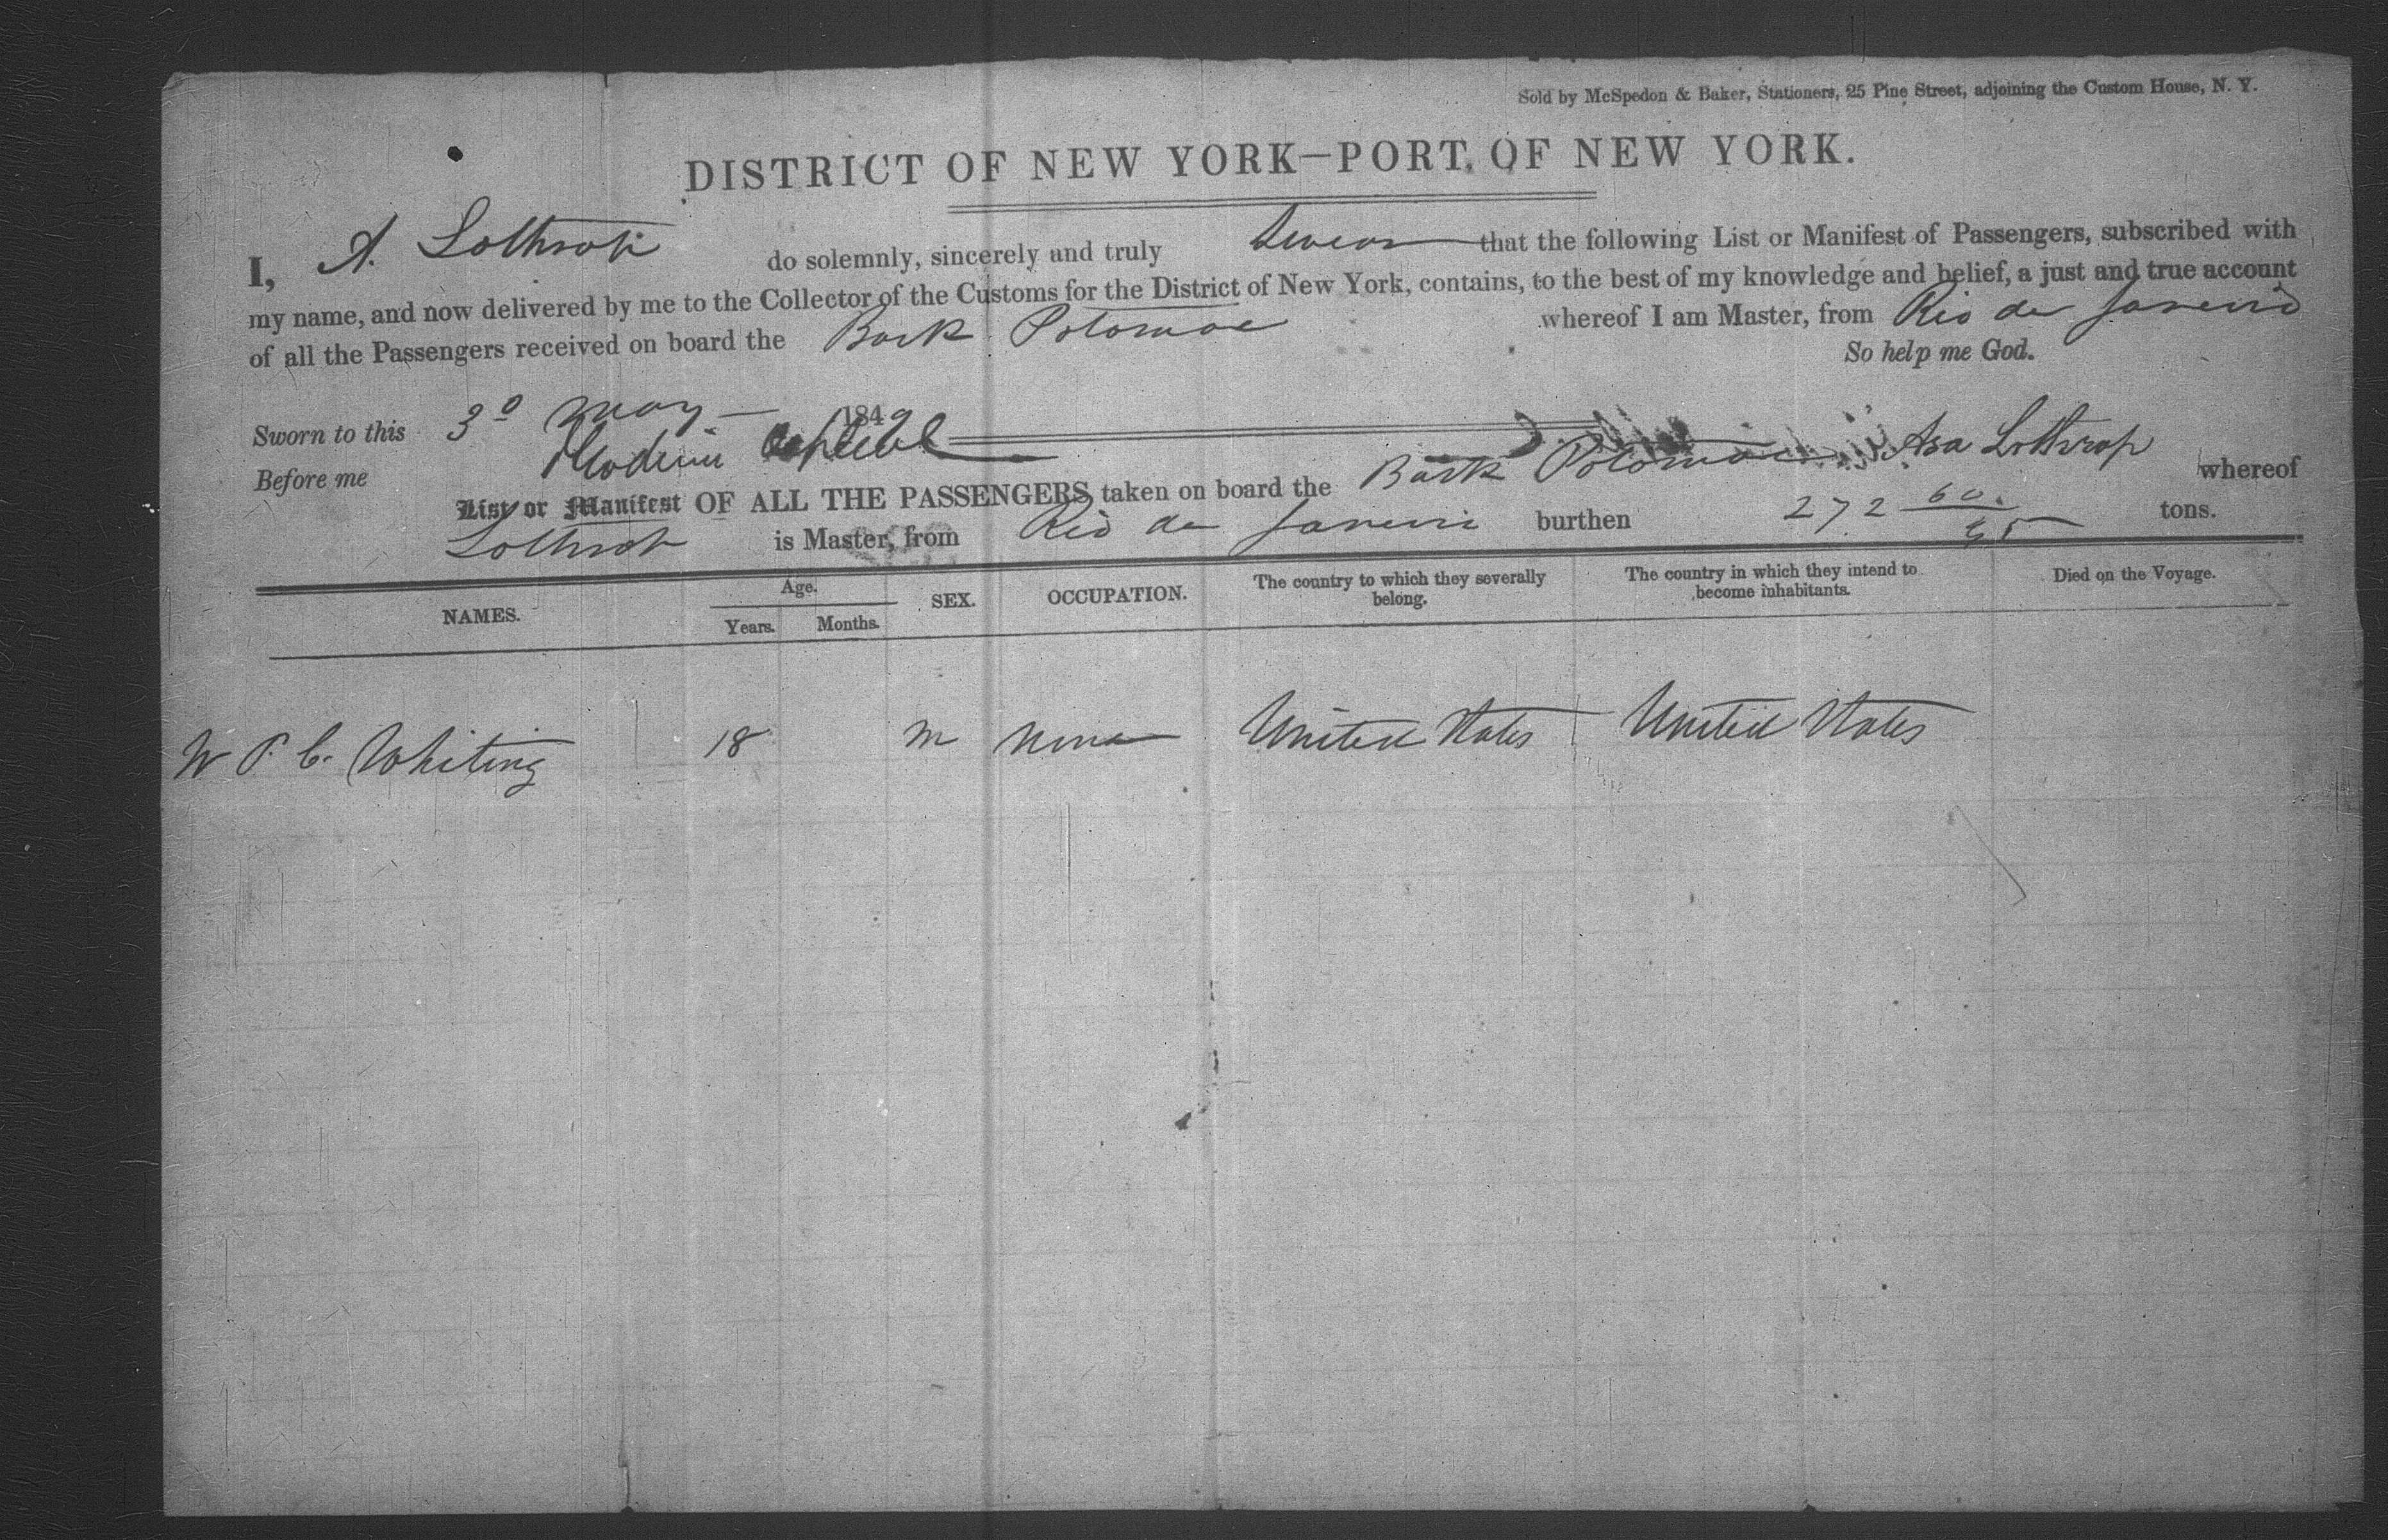 Sold by McSpedon & Baker, Stationers, 25 Pine Street, adjoining the Custom House, N. Y.
DISTRICT OF NEW YORK—PORT OF NEW YORK.
I, A. Lothrop do solemnly, sincerely and truly swear that the following List or Manifest of Passengers, subscribed with
my name, and now delivered by me to the Collector of the Customs for the District of New York, contains, to the best of my knowledge and belief, a just and true account
of all the Passengers received on board the Bark Potomac whereof I am Master, from Rio de Janeiro
So help me God.
Sworn to this 30 May 1849
Before me
Asa Lothrop
List or Manifest OF ALL THE PASSENGERS taken on board the Bark Potomac whereof
Lothrop is Master, from Rio de Janeiro burthen 272 60/95 tons.
NAMES. Age. Years. Months. SEX. OCCUPATION. The country to which they severally belong. The country in which they intend to become inhabitants. Died on the Voyage.
W P. C. Whiting 18 M None United States United States